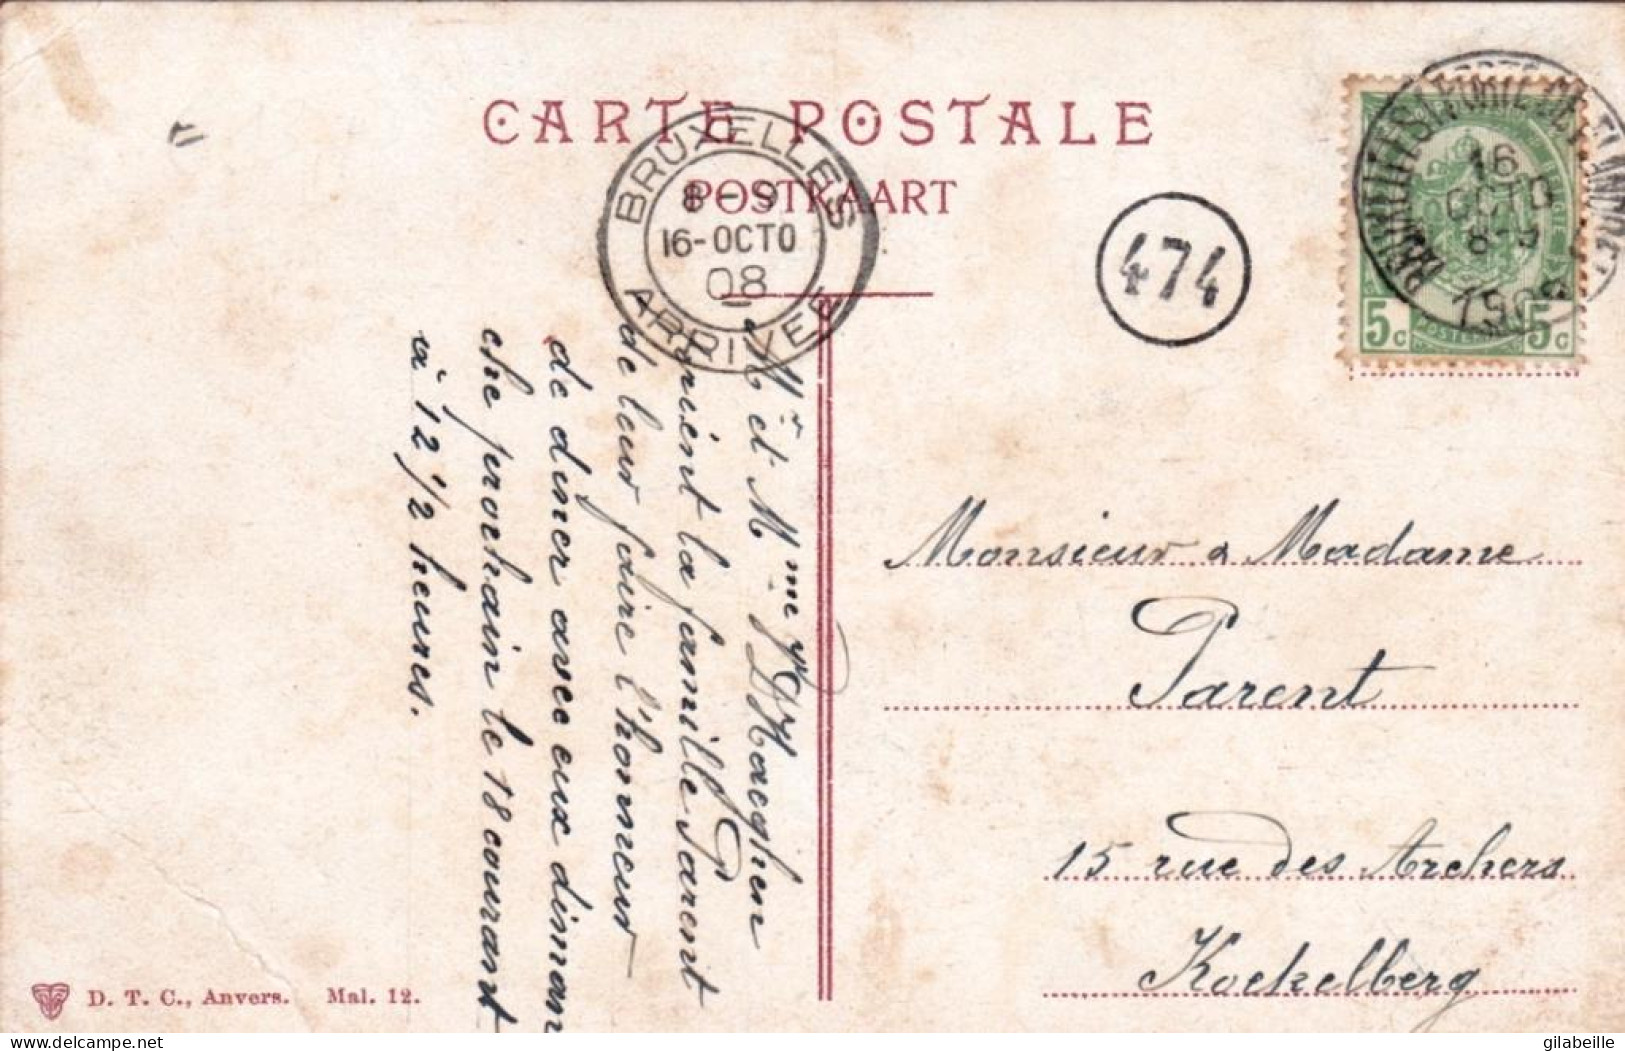 CARTE POSTALE
POSTKAART
BRUXELLES
8-9
16-OCTO
08
ARRIVEE
474
16
OCTO
8-9
1908
5c
5c
Mr et Mme D'Haeghen
prient la famille Parent
de leur faire l'honneur
de diner avec eux diman
che prochain le 18 courant
à 12 1/2 heures.
Monsieur & Madame
Parent
15 rue des Archers
Koekelberg
D. T. C., Anvers. Mal. 12.
delcampe.net
gilabeille